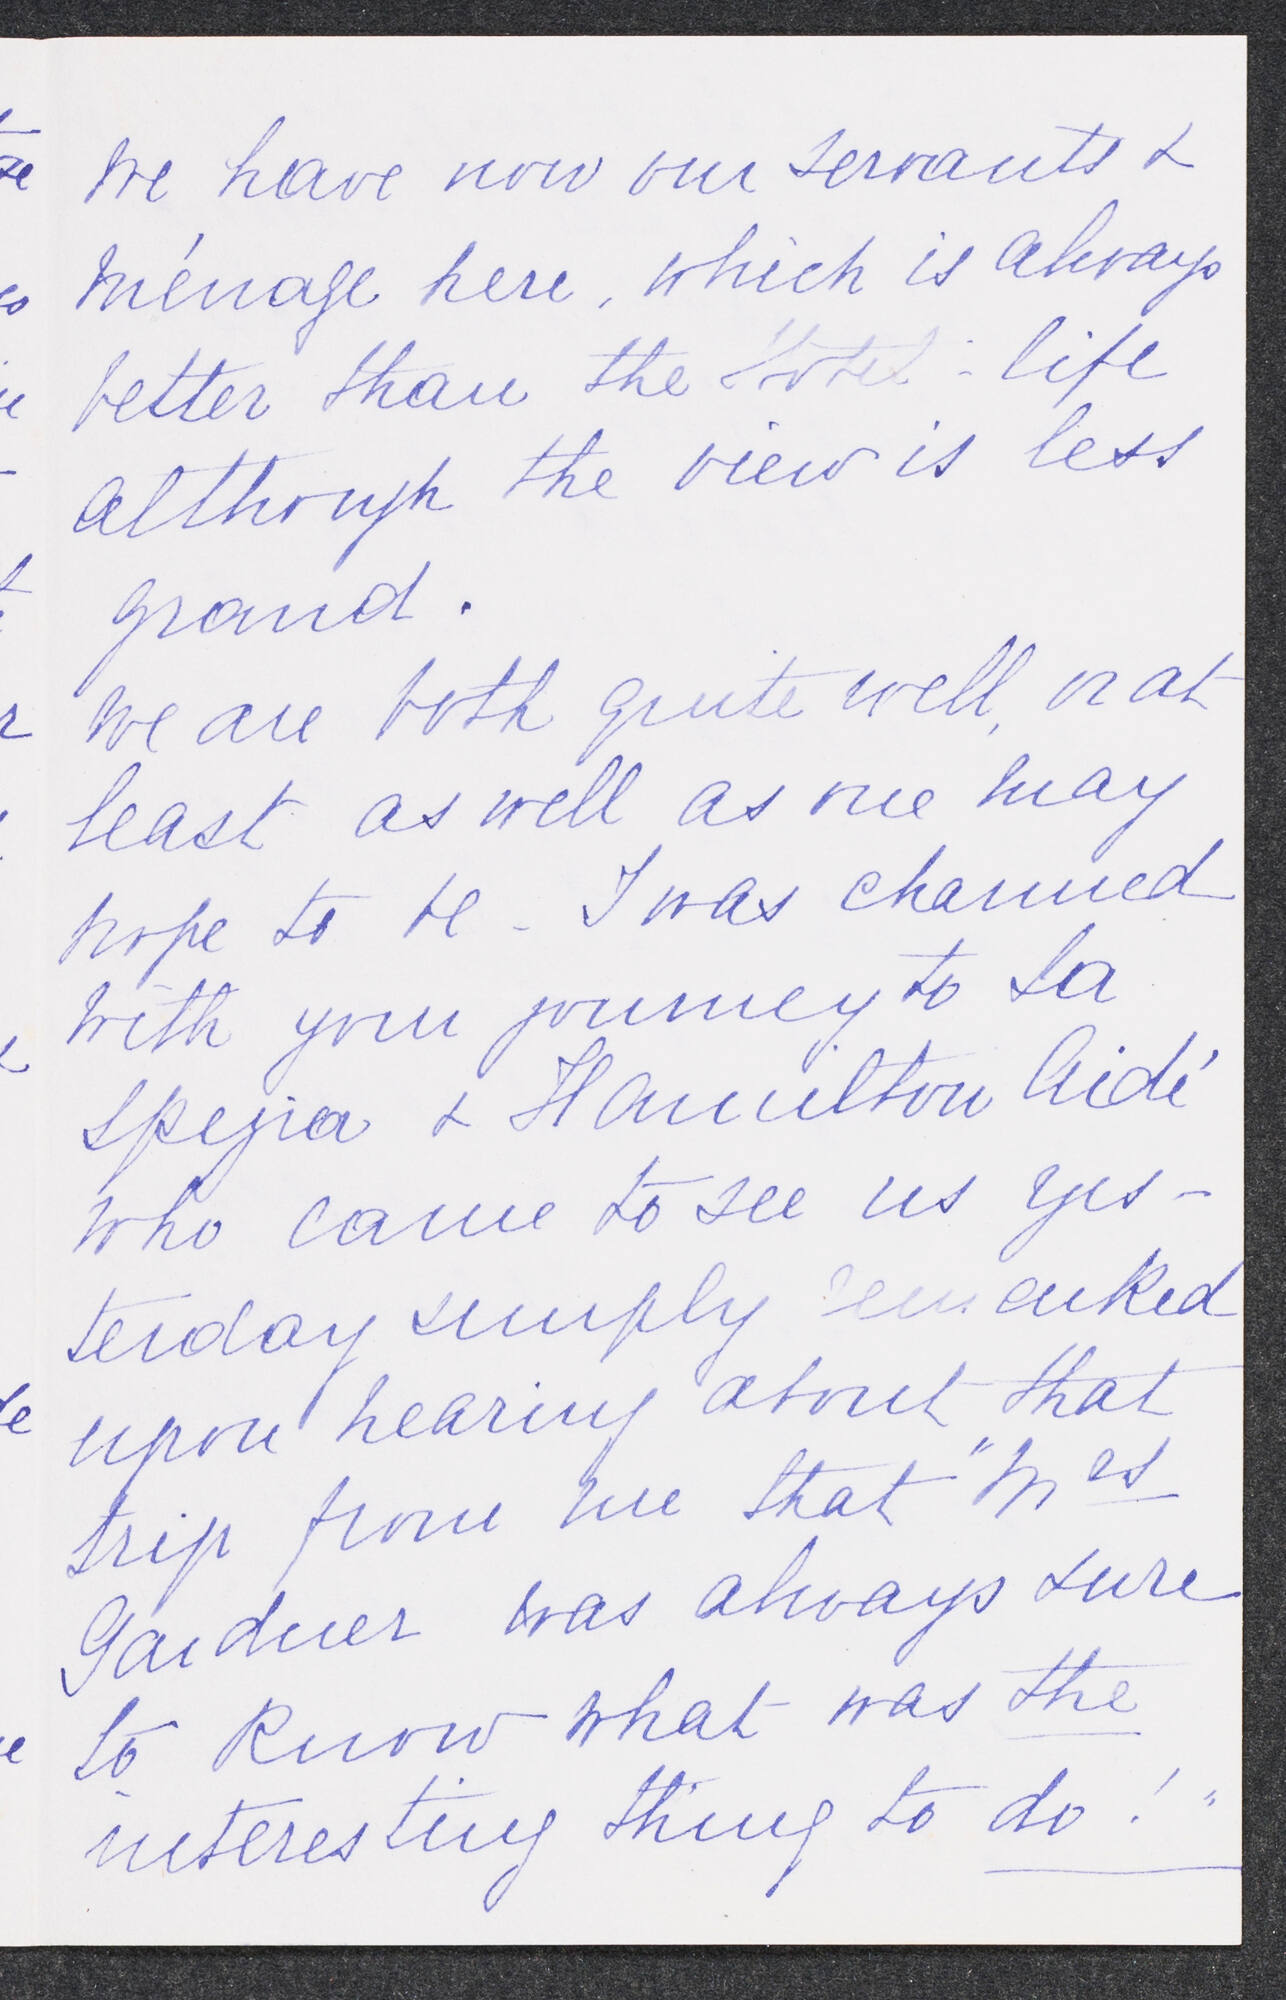 We have now our servants &
ménage here, which is always
better than the Hotel-life
although the view is less
grand.
We are both quite well, or at
least as well as one may
hope to be - I was charmed
with your journey to La
Spezia & Hamilton Aidé
who came to see us yes-
terday simply remarked
upon hearing about that
trip from me that "Mrs
Gardner was always sure
to know what was the
interesting thing to do!"